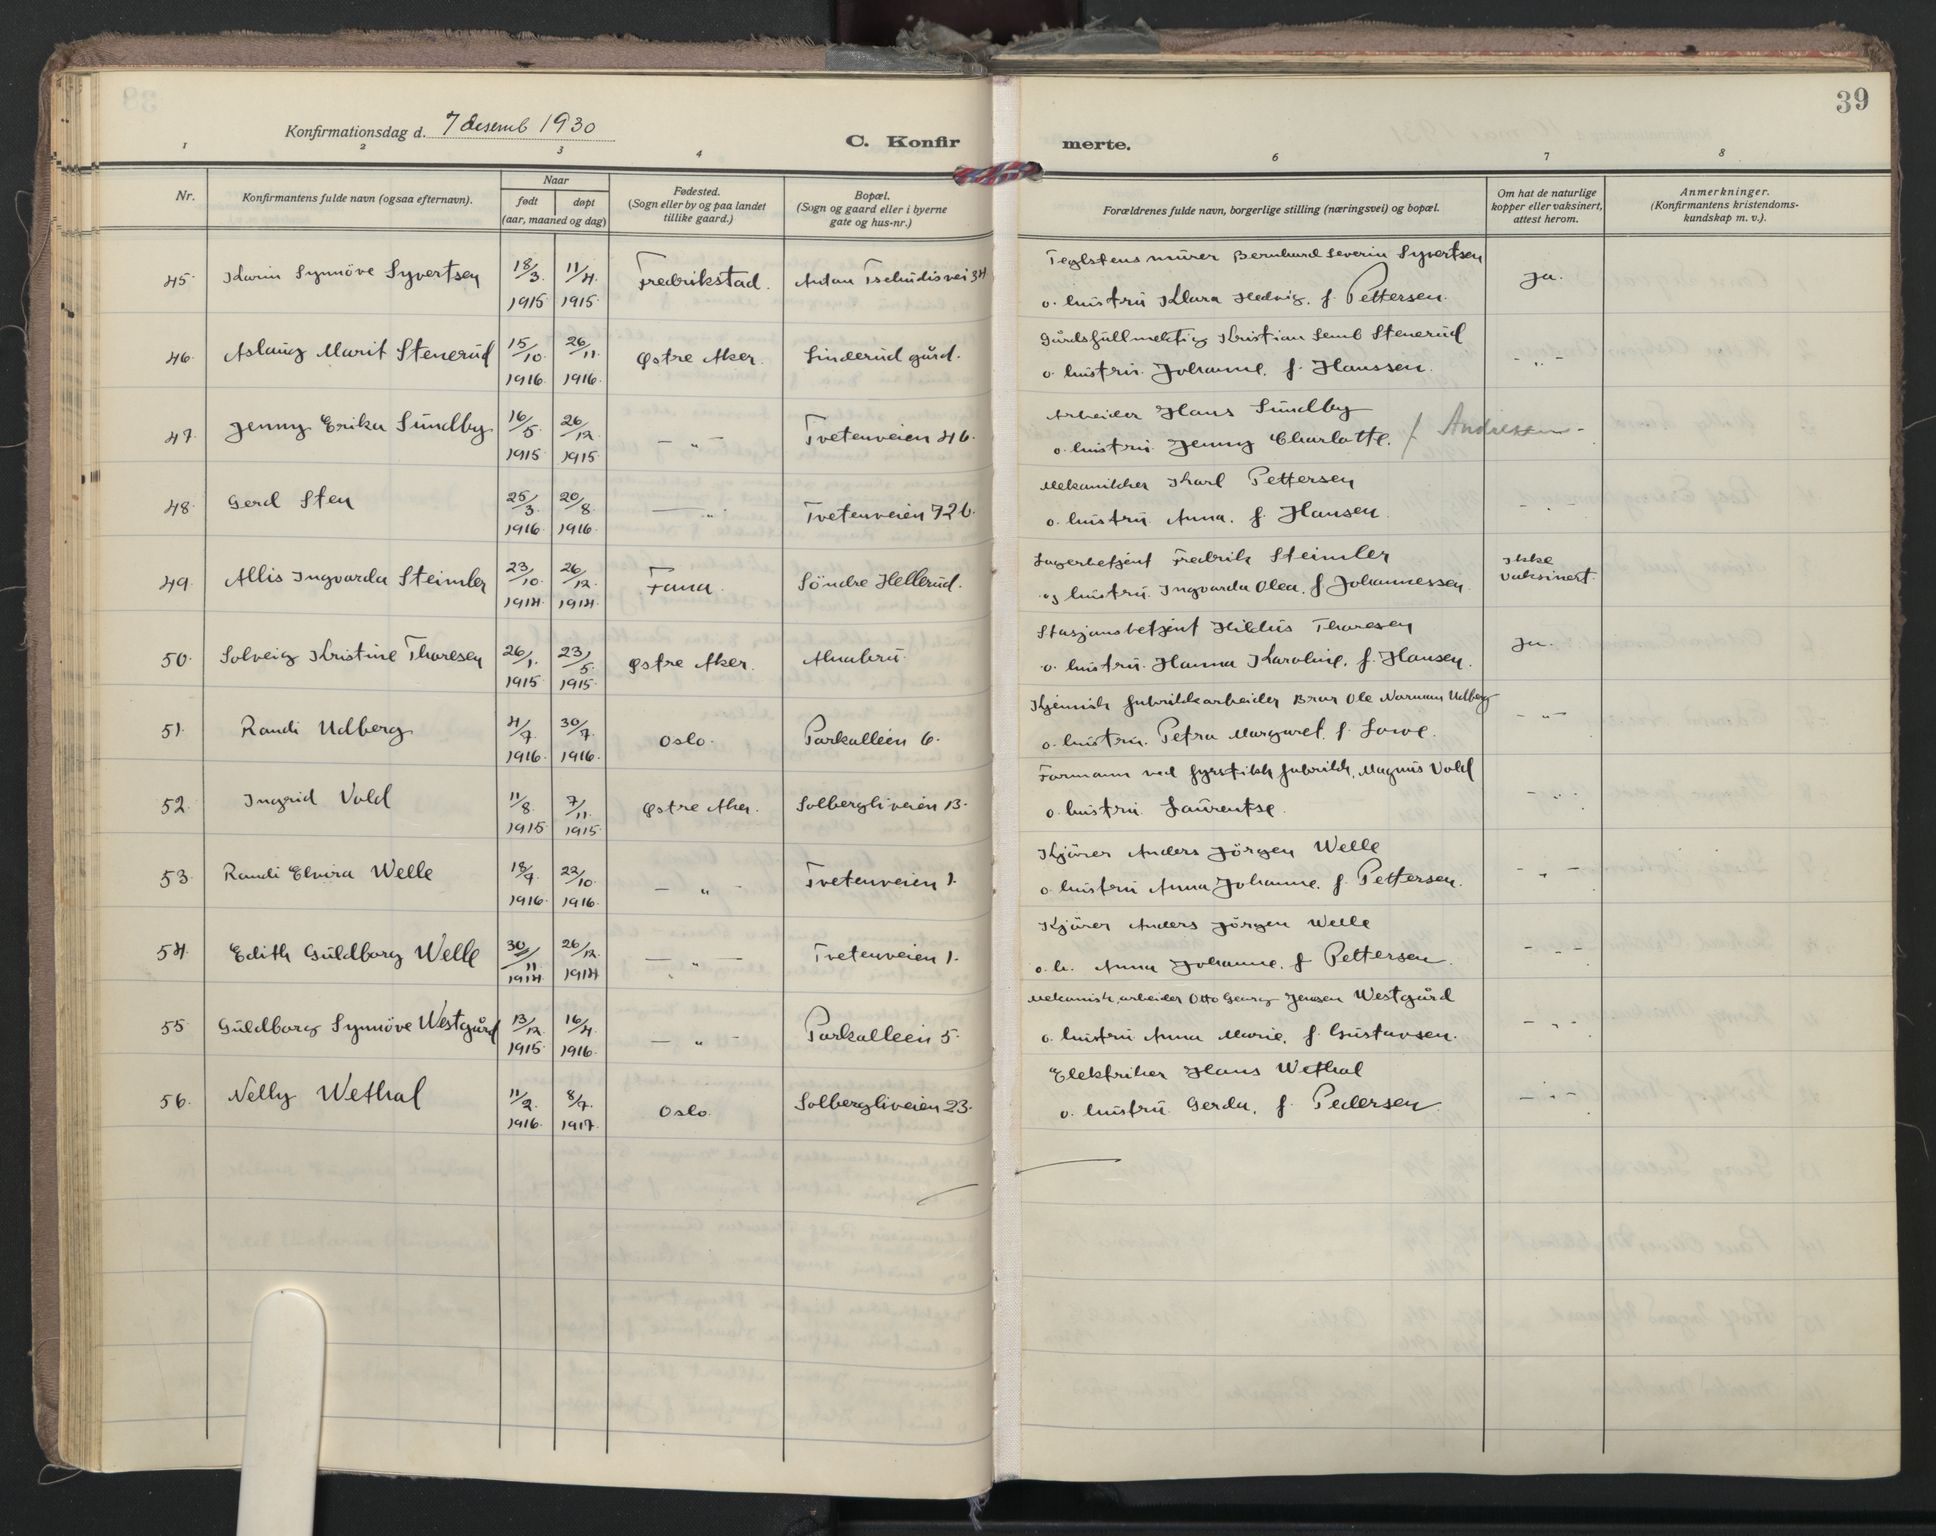 39
Konfirmationsdag d. 7 desemb 1930
C. Konfir merte.
1 2 3 4 6 7 8
Nr.
Konfirmantens fulde navn (ogsaa efternavn).
Naar
født døpt
(aar, maaned og dag)
Fødested.
(Sogn eller by og paa landet
tillike gaard.)
Bopæl.
(Sogn og gaard eller i byerne
gate og hus-nr.)
Forældrenes fulde navn, borgerlige stilling (næringsvei) og bopæl.
Om hat de naturlige
kopper eller vaksinert,
attest herom.
Anmerkninger.
(Konfirmantens kristendoms-
kundskap m. v.).
45. Karin Synnöve Syvertsen 18/3 1915 11/4 1915 Fredrikstad. Anton Tschudisvei 34
Teglstensmürer Bernhard Severin Syvertsen
o. hüstrü Klara Hedvig, f. Pettersen. Ja.
46. Aslaüg Marit Stenerüd 15/10 1916. 26/11. 1916. Østre Aker. Linderüd gård.
Gårdsfüllmektig Kristian Semb Stenerüd
o. hüstrü. Johanne, f. Hanssen. - „ -
47. Jenny Erika Sündby 16/5 1915 26/12. 1915 - „ - Tvetenveien 46.
Arbeider Hans Sündby
o. hüstrü. Jenny Charlotte. f Andressen -
48. Gerd Sten 25/3. 1916. 20/8. 1916. - „ Tvetenveien 72 b.
Mekanikker Karl Pettersen
o. hüstrü. Anna, f. Hansen. - „ -
49. Allis Ingvarda Steimler 23/10. 1914. 26/12. 1914. Fana. Söndre Hellerüd.
Lagerbetjent Fredrik Steimler
og hüstrü. Ingvarda Olea, f Johannessen.
Ikke
vaksinert.
50. Solveig Kristine Thoresen 26/1. 1915 23/5. 1915. Østre Aker. Alnabrü.
Stasjonsbetjent Hildüs Thoresen
o. hüstrü. Hanna Karoline, f. Hansen. Ja.
51. Randi Udberg 4/7. 1916. 30/7. 1916. Oslo. Parkalleen 6.
Kjemisk fabrikkarbeider Brar Ole Norman Udberg
o. hüstrü. Petra Margaret, f. Lowe. - „ -
52. Ingrid Vold 11/8. 1915 7/11. 1915 Østre Aker. Solbergliveien 13.
Formann ved fyrstikk fabrikk, Magnüs Vold
o. hüstrü Laürentse. - „ -
53. Randi Elvira Welle 18/7. 1916. 22/10. 1916. - „ - Tvetenveien 1.
Kjörer Anders Jörgen Welle
o. hüstrü Anna Johanne, f. Pettersen. - „ -
54. Edith Güldborg Welle 30/11 1914 26/12. 1914 - „ - Tvetenveien 1.
Kjörer Anders Jörgen Welle
o. h. Anna Johanne, f Pettersen. - „ -
55 Güldborg Synnöve Westgård 13/12. 1915 16/4. 1916. - „ - Parkalleen 5.
Mekanisk, arbeider Otto Georg Jensen Westgård
o. hüstrü Anna Marie, f. Güstavsen. - „ -
56. Nelly Wethal 11/2. 1916. 8/7. 1917. Oslo. Solbergliveien 23.
Elektriker Hans Wethal
o. hüstrü. Gerda, f. Pedersen. - „ -